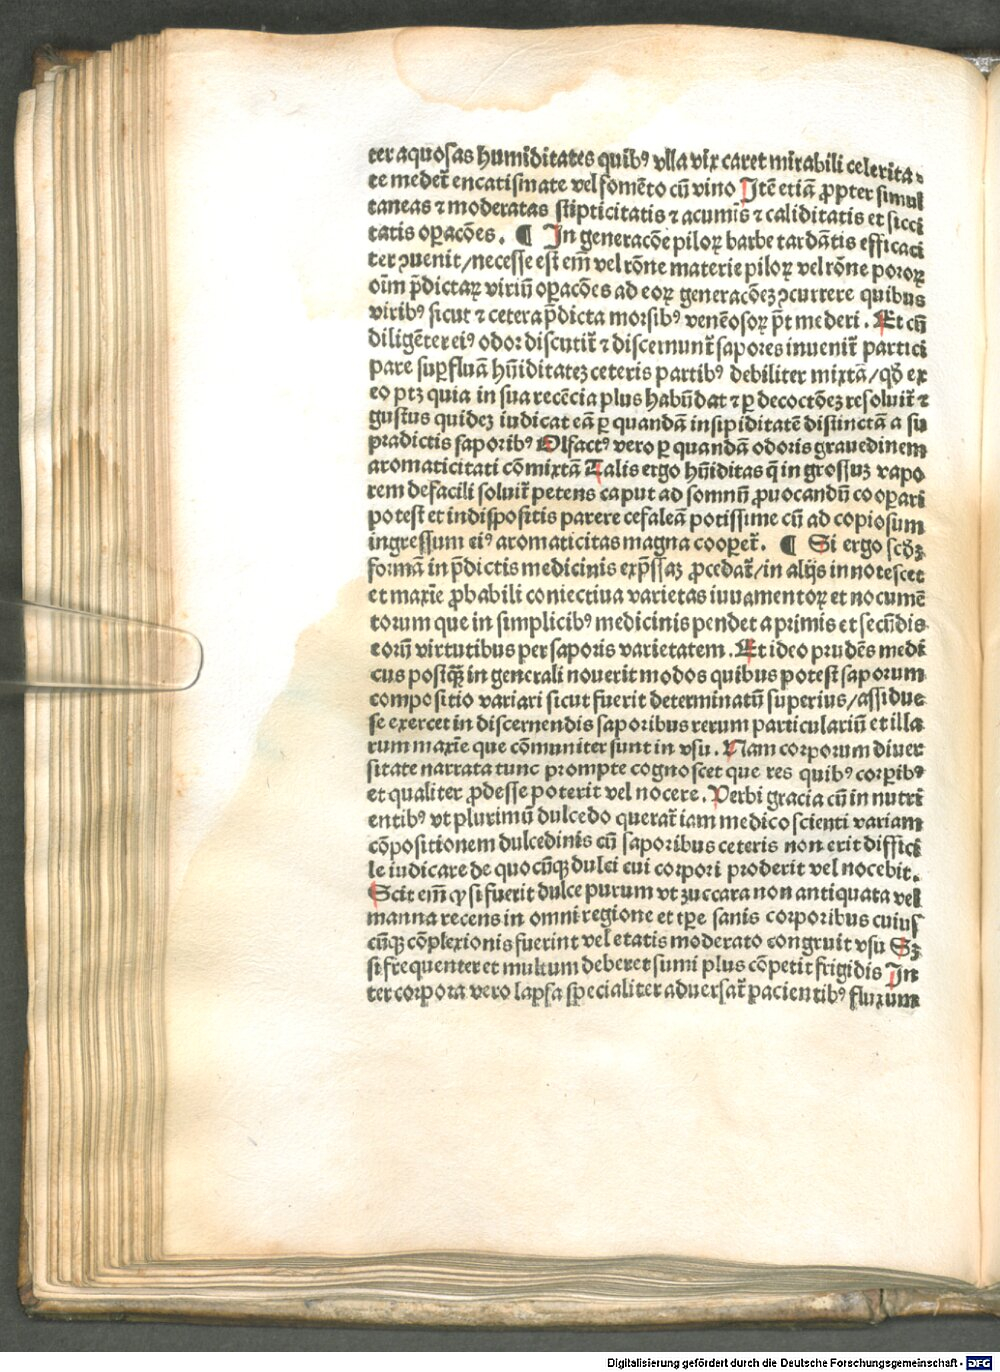 ter aquosas humiditates quibꝰ vlla vix caret mirabili celerita⸗
te medet᷑ encatismate vel fomēto cū vino Itē etiā ꝓpter simul
taneas ⁊ moderatas stipticitatis ⁊ acumīs ⁊ caliditatis et sicci
tatis oꝑacōes. ¶ In generacōe piloꝝ barbe tardātis efficaci
ter ꝯuenit/necesse est em̄ vel rōne materie piloꝝ vel rōne poroꝝ
oīm p̄dictaꝝ viriū oꝑacōes ad eoꝝ generacōeꝫ ꝯcurrere quibus
viribꝰ sicut ⁊ cetera p̄dicta morsibꝰ venēosoꝝ p̄t mederi. Et cū
diligēter eiꝰ odor discutit᷑ ⁊ discernunt᷑ sapores inuenit᷑ partici
pare suꝑfluā hūiditateꝫ ceteris partibꝰ debiliter mixtā/qd̄ ex
eo ptꝫ quia in sua recēcia plus habūdat ⁊ ꝑ decoctōeꝫ resoluit᷑ ⁊
gustus quideꝫ iudicat eā ꝑ quandā insipiditatē distinctā a su
pradictis saporibꝰ Olfactꝰ vero ꝑ quandā odoris grauedinem
aromaticitati cōmixtā Talis ergo hūiditas q̄ in grossuꝫ vapo
rem defacili soluit᷑ petens caput ad somnū ꝓuocandū cooꝑari
potest et indispositis parere cefaleā potissime cū ad copiosum
ingressum eiꝰ aromaticitas magna cooꝑet᷑. ¶ Si ergo scd̄ꝫ
formā in p̄dictis medicinis exp̄ssaꝫ ꝓcedat᷑/in alijs innotescet
et maxīe ꝓbabili coniectiua varietas iuuamentoꝝ et nocumē
torum que in simplicibꝰ medicinis pendet a primis et secūdis
eorū virtutibus per saporis varietatem. Et ideo prudēs medi
cus postqᷓꝫ in generali nouerit modos quibus potest saporum
compositio variari sicut fuerit determinatū superius/assidue
se exercet in discernendis saporibus rerum particulariū et illa
rum maxīe que cōmuniter sunt in vsu. Nam corporum diuer
sitate narrata tunc prompte cognoscet que res quibꝰ corꝑibꝰ
et qualiter ꝓdesse poterit vel nocere. Verbi gracia cū in nutri
entibꝰ vt plurimū dulcedo querat᷑ iam medico scienti variam
cōpositionem dulcedinis cū saporibus ceteris non erit diffici
le iudicare de quocūqꝫ dulci cui corpori proderit vel nocebit.
Scit em̄ ꝙ si fuerit dulce purum vt zuccara non antiquata vel
manna recens in omni regione et tꝑe sanis corporibus cuius
cūqꝫ cōplexionis fuerint vel etatis moderato congruit vsu Sꝫ
si frequenter et multum deberet sumi plus cōpetit frigidis In
ter corpora vero lapsa specialiter aduersat᷑ pacientibꝰ fluxum
Digitalisierung gefördert durch die Deutsche Forschungsgemeinschaft - DFG